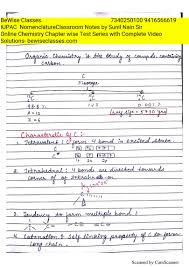 BeWise Classes 7340250100 9416566619
IUPAC NomenclatureClassroom Notes by Sunil Nain Sir
Online Chemistry Chapter wise Test Series with Complete Video
Solutions- bewiseclasses.com
Organic Chemistry is the study of compds. containing
carbon.
C
Isotopes
Characterstic of C :
1. Tetravalent : C forms 4 bond in excited state.
2. Tetrahedral : 4 bonds are directed towards
corner of a tetrahedron
3. Tendency to form multiple bonds :
4. Catenation & Self linking property of C to form
long chain.
Scanned by CamScanner